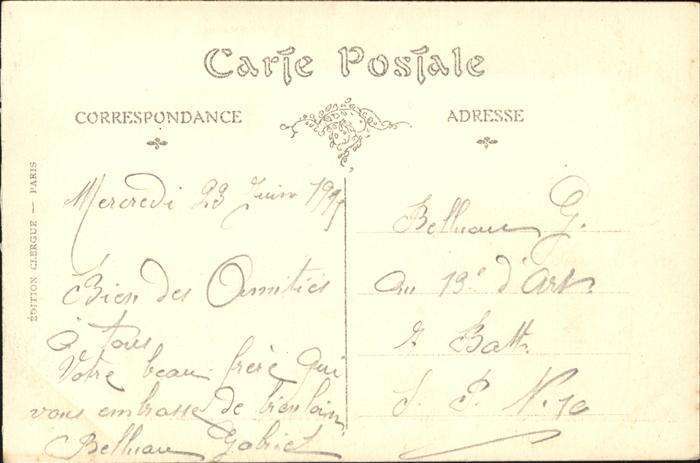 Carte Postale
CORRESPONDANCE
ADRESSE
ÉDITION CLERGUE — PARIS
Mercredi 23 Juin 1915
Bien des Amitiés
à tous
Votre beau frère qui
vous embrasse de bien loin
Belluau Gabriel
Belluau G.
au 19e d'Art.
Batt.
S. P. N. 10